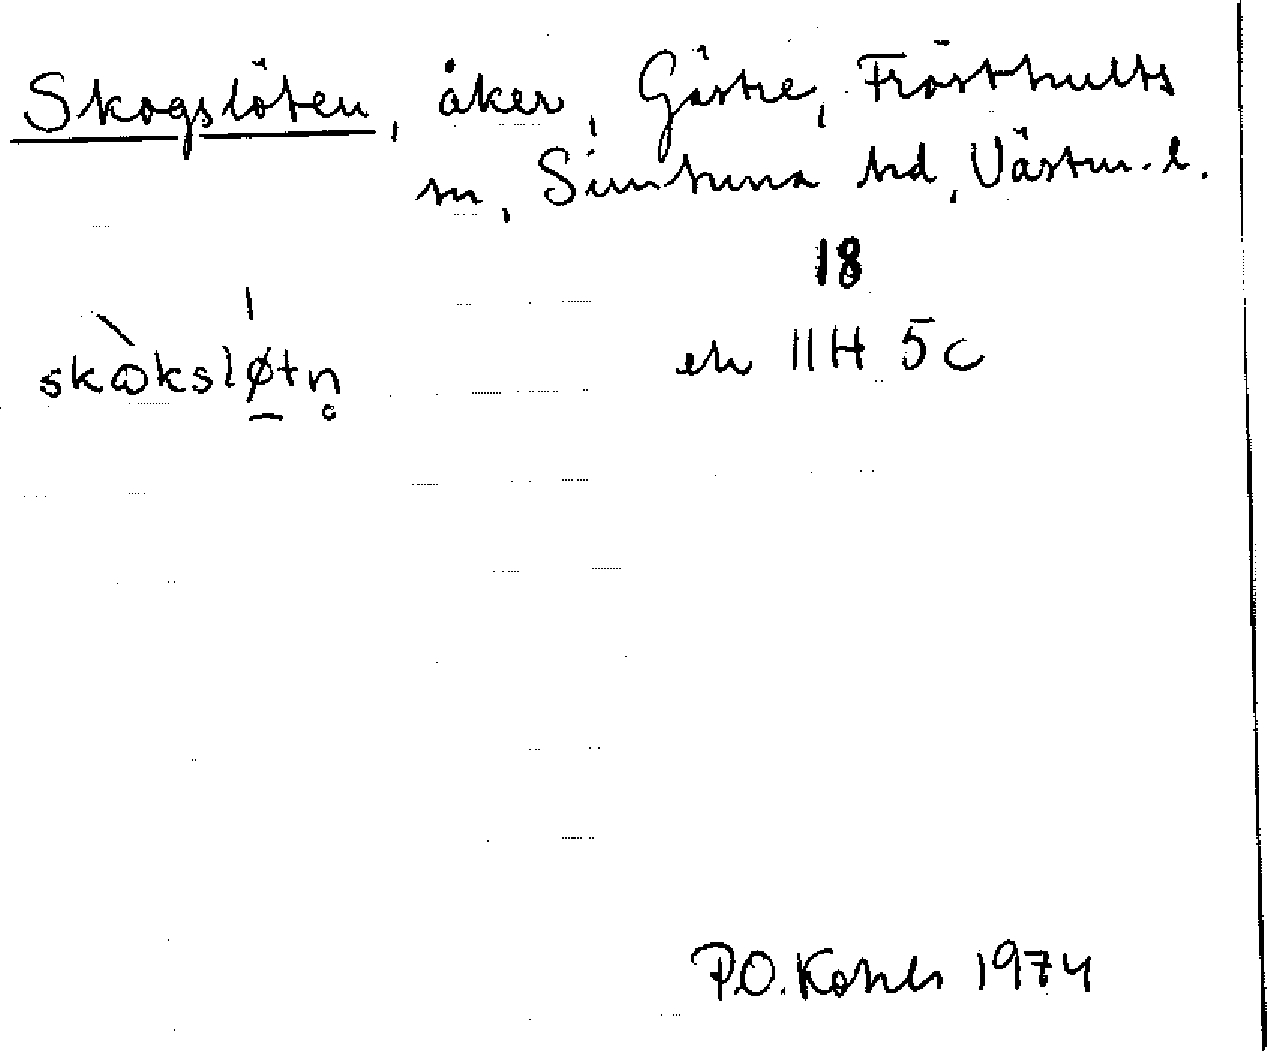 Skogslöten, åker, Gästre, Frösthults
sn, Simtuna hd, Västm. l.
18
ek 11H 5c
skωkslø̱tn̥
P.O. Kohls 1974